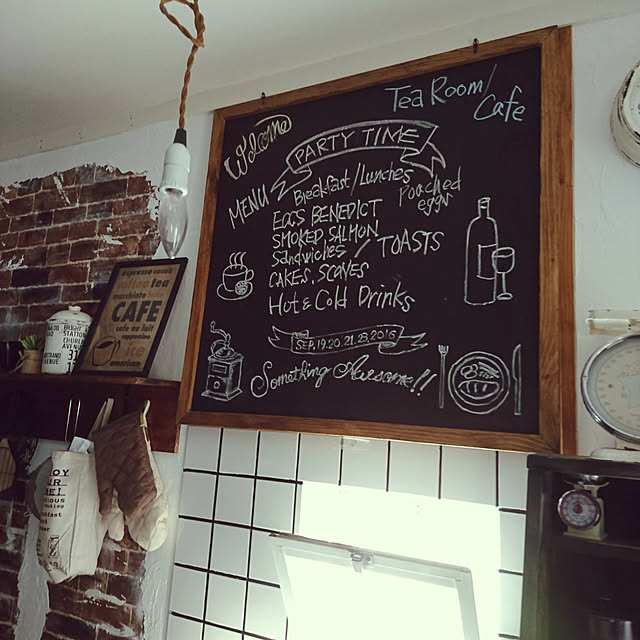 Tea Room/
Cafe
Welcome
PARTY TIME
MENU
Breakfast/Lunches
Poached
eggs
EGGS BENEDICT
SMOKED SALMON
Sandwiches / TOASTS
CAKES, SCONES
Hot & Cold Drinks
SEP. 19. 20. 21. 23, 2016
Something Awesome!!
espresso
tea
macchiato
CAFE
cafe au lait
cappuccino
ice
american
BRIGHT
STATION
CHURCH
STRAND